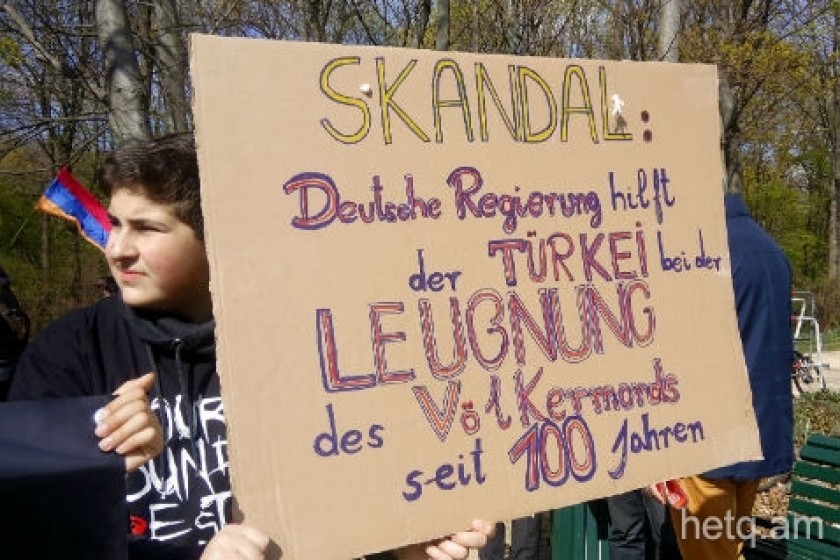 SKANDAL:
Deutsche Regierung hilft
der TÜRKEI bei der
LEUGNUNG
des Völkermords
seit 100 Jahren
hetq.am